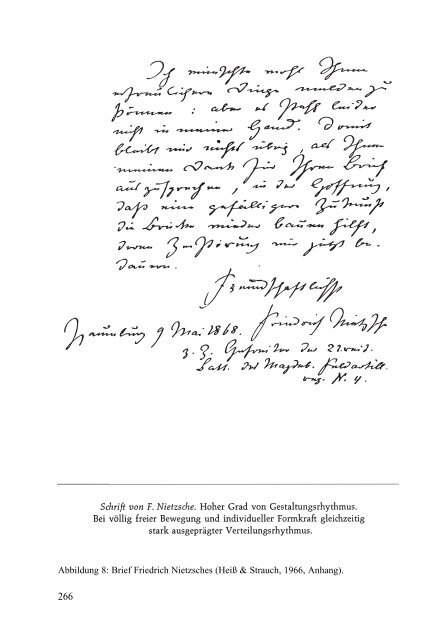 Ich wünschte wohl Ihnen
erfreulichere Dinge melden zu
können: aber es steht leider
nicht in meiner Hand. Damit
bleibt mir nichts übrig, als Ihnen
meinen Dank für Ihren Brief
auszusprechen, in der Hoffnung,
daß eine gefälligere Zukunft
die Brücke wieder bauen hilft,
deren Zerstörung wir jetzt be-
dauern.
Freundschaftlichst
Friedrich Nietzsche
Naumburg 9 Mai 1868.
z. Z. Gefreiter der 21 reit.
Batt. des Magdeb. Feldartill.
reg. N. 4.
Schrift von F. Nietzsche. Hoher Grad von Gestaltungsrhythmus.
Bei völlig freier Bewegung und individueller Formkraft gleichzeitig
stark ausgeprägter Verteilungsrhythmus.
Abbildung 8: Brief Friedrich Nietzsches (Heiß & Strauch, 1966, Anhang).
266